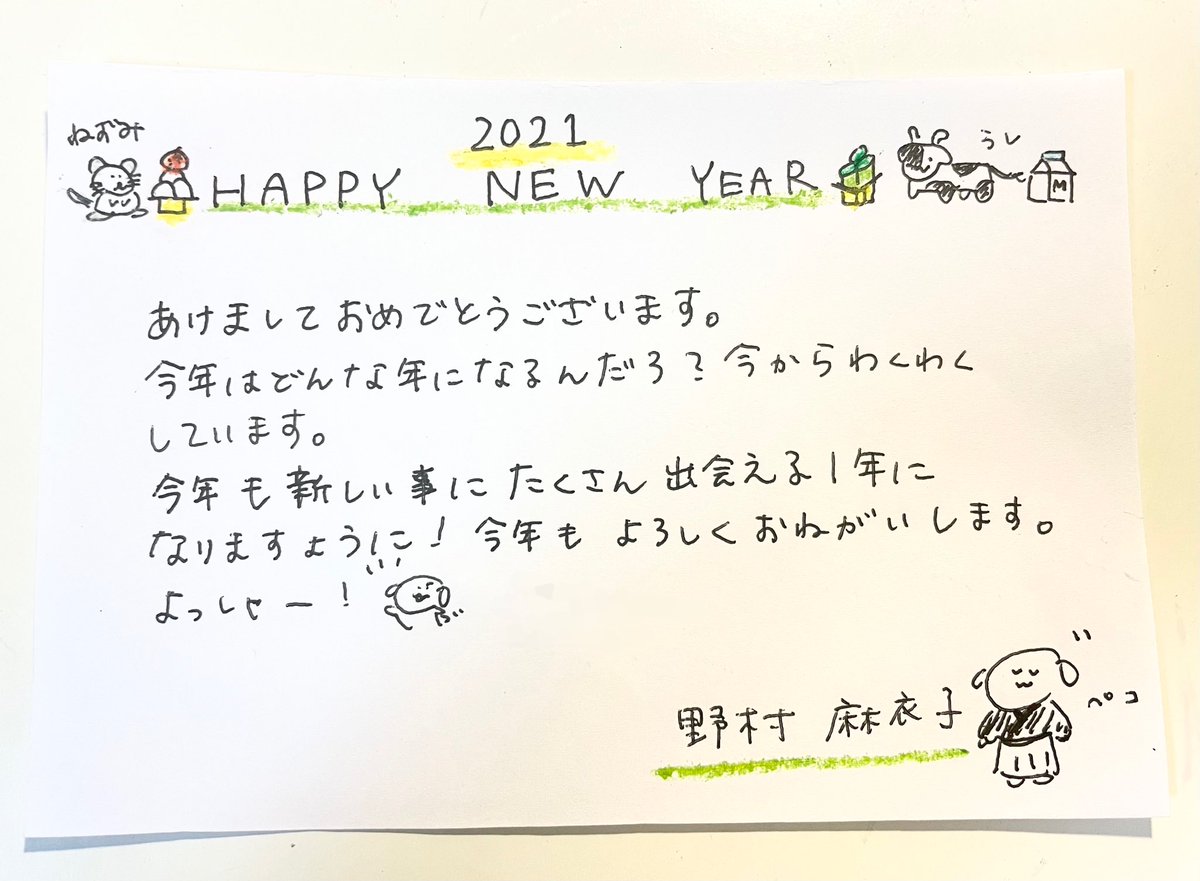 2021
ねずみ
HAPPY NEW YEAR
うし
M
あけましておめでとうございます。
今年はどんな年になるんだろ？今からわくわく
しています。
今年も新しい事にたくさん出会える1年に
なりますように！今年もよろしくおねがいします。
よっしゃー！
野村 麻衣子
ペコ